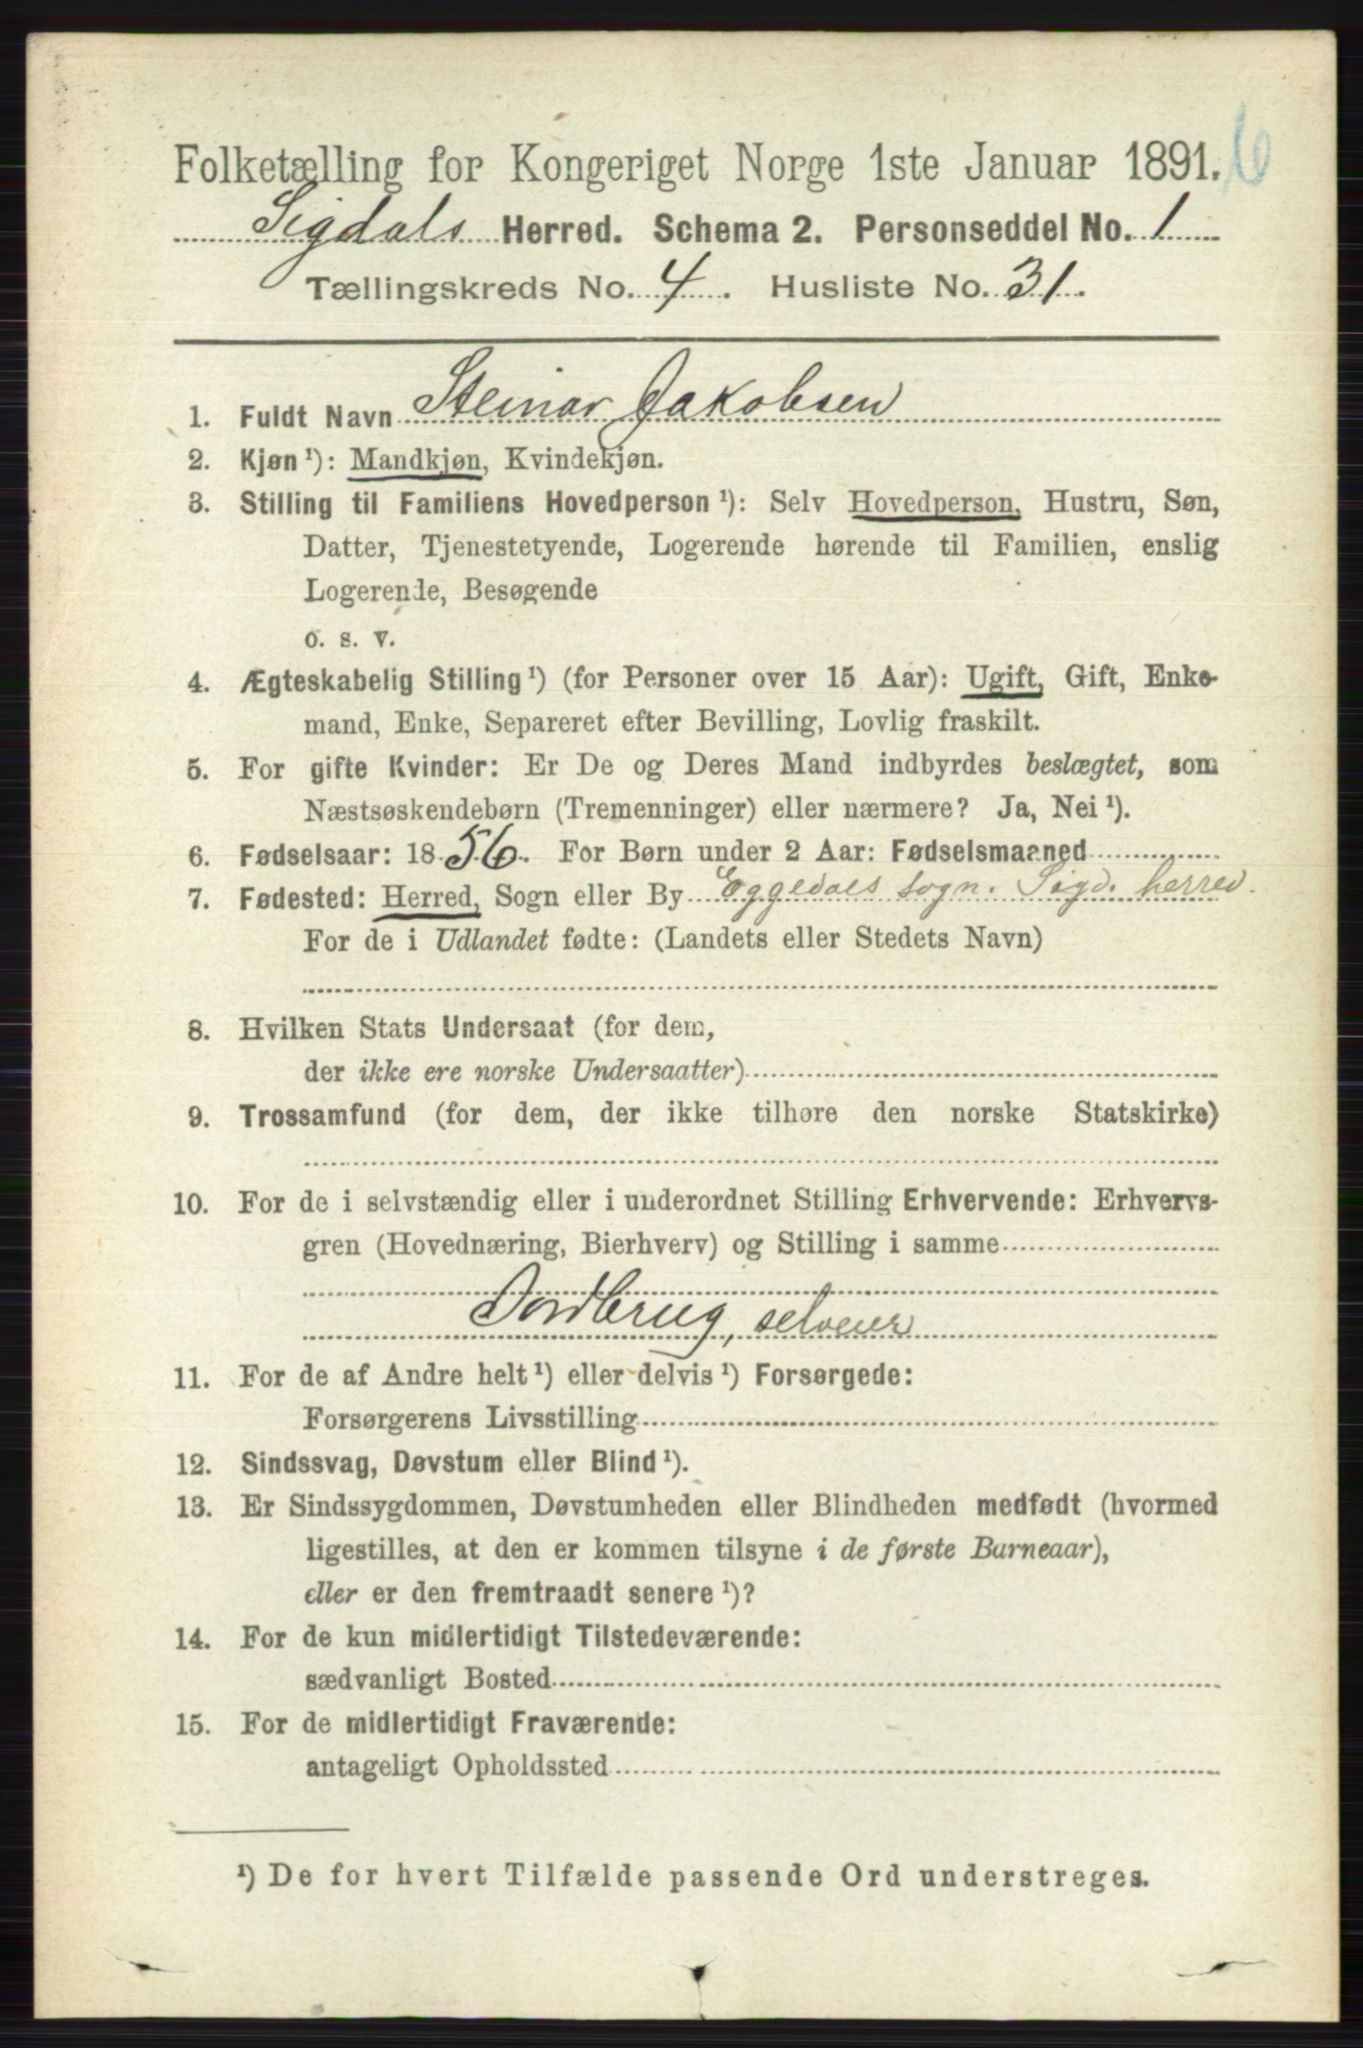 Folketælling for Kongeriget Norge 1ste Januar 1891. 6
Sigdals Herred. Schema 2. Personseddel No. 1
Tællingskreds No. 4. Husliste No. 31.
1. Fuldt Navn Steinar Jakobsen
2. Kjøn ¹): Mandkjøn, Kvindekjøn.
3. Stilling til Familiens Hovedperson ¹): Selv Hovedperson, Hustru, Søn,
Datter, Tjenestetyende, Logerende hørende til Familien, enslig
Logerende, Besøgende
o. s. v.
4. Ægteskabelig Stilling ¹) (for Personer over 15 Aar): Ugift, Gift, Enke-
mand, Enke, Separeret efter Bevilling, Lovlig fraskilt.
5. For gifte Kvinder: Er De og Deres Mand indbyrdes beslægtet, som
Næstsøskendebørn (Tremenninger) eller nærmere? Ja, Nei ¹).
6. Fødselsaar: 1856. For Børn under 2 Aar: Fødselsmaaned
7. Fødested: Herred, Sogn eller By Eggedals sogn. Sigd. herred.
For de i Udlandet fødte: (Landets eller Stedets Navn)
8. Hvilken Stats Undersaat (for dem,
der ikke ere norske Undersaatter)
9. Trossamfund (for dem, der ikke tilhøre den norske Statskirke)
10. For de i selvstændig eller i underordnet Stilling Erhvervende: Erhvervs-
gren (Hovednæring, Bierhverv) og Stilling i samme
Jordbrug, selveier
11. For de af Andre helt ¹) eller delvis ¹) Forsørgede:
Forsørgerens Livsstilling
12. Sindssvag, Døvstum eller Blind ¹).
13. Er Sindssygdommen, Døvstumheden eller Blindheden medfødt (hvormed
ligestilles, at den er kommen tilsyne i de første Barneaar),
eller er den fremtraadt senere ¹)?
14. For de kun midlertidigt Tilstedeværende:
sædvanligt Bosted
15. For de midlertidigt Fraværende:
antageligt Opholdssted
¹) De for hvert Tilfælde passende Ord understreges.